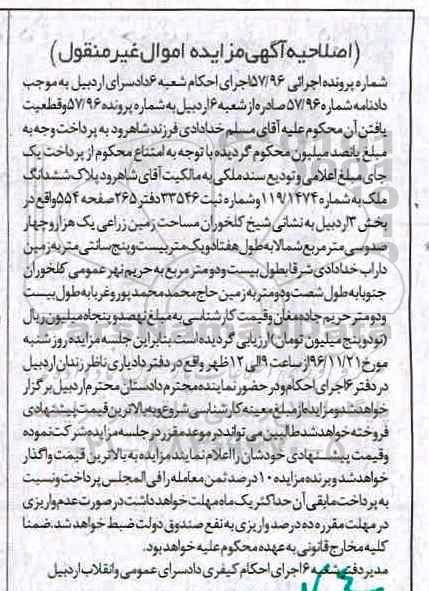 (اصلاحیه آگهی مزایده اموال غیر منقول)
شماره پرونده اجرائی ۵۷/۹۶ اجرای احکام شعبه ۶ دادسرای اردبیل به موجب
دادنامه شماره ۵۷/۹۶ صادره از شعبه ۶ اردبیل به شماره پرونده ۵۷/۹۶ و قطعیت
یافتن آن محکوم علیه آقای مسلم خدادادی فرزند شاهرود به پرداخت وجه به
مبلغ پانصد میلیون محکوم گردیده با توجه به امتناع محکوم از پرداخت یک
جای مبلغ اعلامی و تودیع سند ملکی به مالکیت آقای شاهرود پلاک ششدانگ
ملک به شماره ۱۱۹/۱۴۷۴ و شماره ثبت ۳۳۵۴۶ دفتر ۲۶۵ صفحه ۵۵۴ واقع در
بخش ۳ اردبیل به نشانی شیخ کلخوران مساحت زمین زراعی یک هزار و چهار
صد و سی متر مربع شمالا به طول هفتاد و یک متر بیست و پنج سانتی متر به زمین
داراب خدادادی شرقا بطول بیست و دو متر مربع به حریم نهر عمومی کلخوران
جنوبا به طول شصت و دو متر به زمین حاج محمد محمد پور و غربا به طول بیست
و دو متر حریم جاده مغان و قیمت کارشناسی به مبلغ نهصد و پنجاه میلیون ریال
(نود و پنج میلیون تومان) ارزیابی گردیده است. بنابراین جلسه مزایده روز شنبه
مورخ ۹۶/۱۱/۲۱ از ساعت ۹ الی ۱۲ ظهر واقع در دفتر دادیاری ناظر زندان اردبیل
در دفتر ۶ اجرای احکام و در حضور نماینده محترم دادستان محترم اردبیل برگزار
خواهد شد و مزایده از مبلغ معینه کارشناسی شروع و به بالاترین قیمت پیشنهادی
فروخته خواهد شد طالبین می توانند در موعد مقرر در جلسه مزایده شرکت نموده
و قیمت پیشنهادی خودشان را اعلام نمایند مزایده به بالاترین قیمت واگذار
خواهد شد و برنده مزایده ۱۰ درصد ثمن معامله را فی المجلس پرداخت و نسبت
به پرداخت مابقی آن حداکثر یک ماه مهلت خواهد داشت در صورت عدم واریزی
در مهلت مقرره ده درصد واریزی به نفع صندوق دولت ضبط خواهد شد. ضمنا
کلیه مخارج قانونی به عهده محکوم علیه خواهد بود.
مدیر دفتر شعبه ۶ اجرای احکام کیفری دادسرای عمومی و انقلاب اردبیل